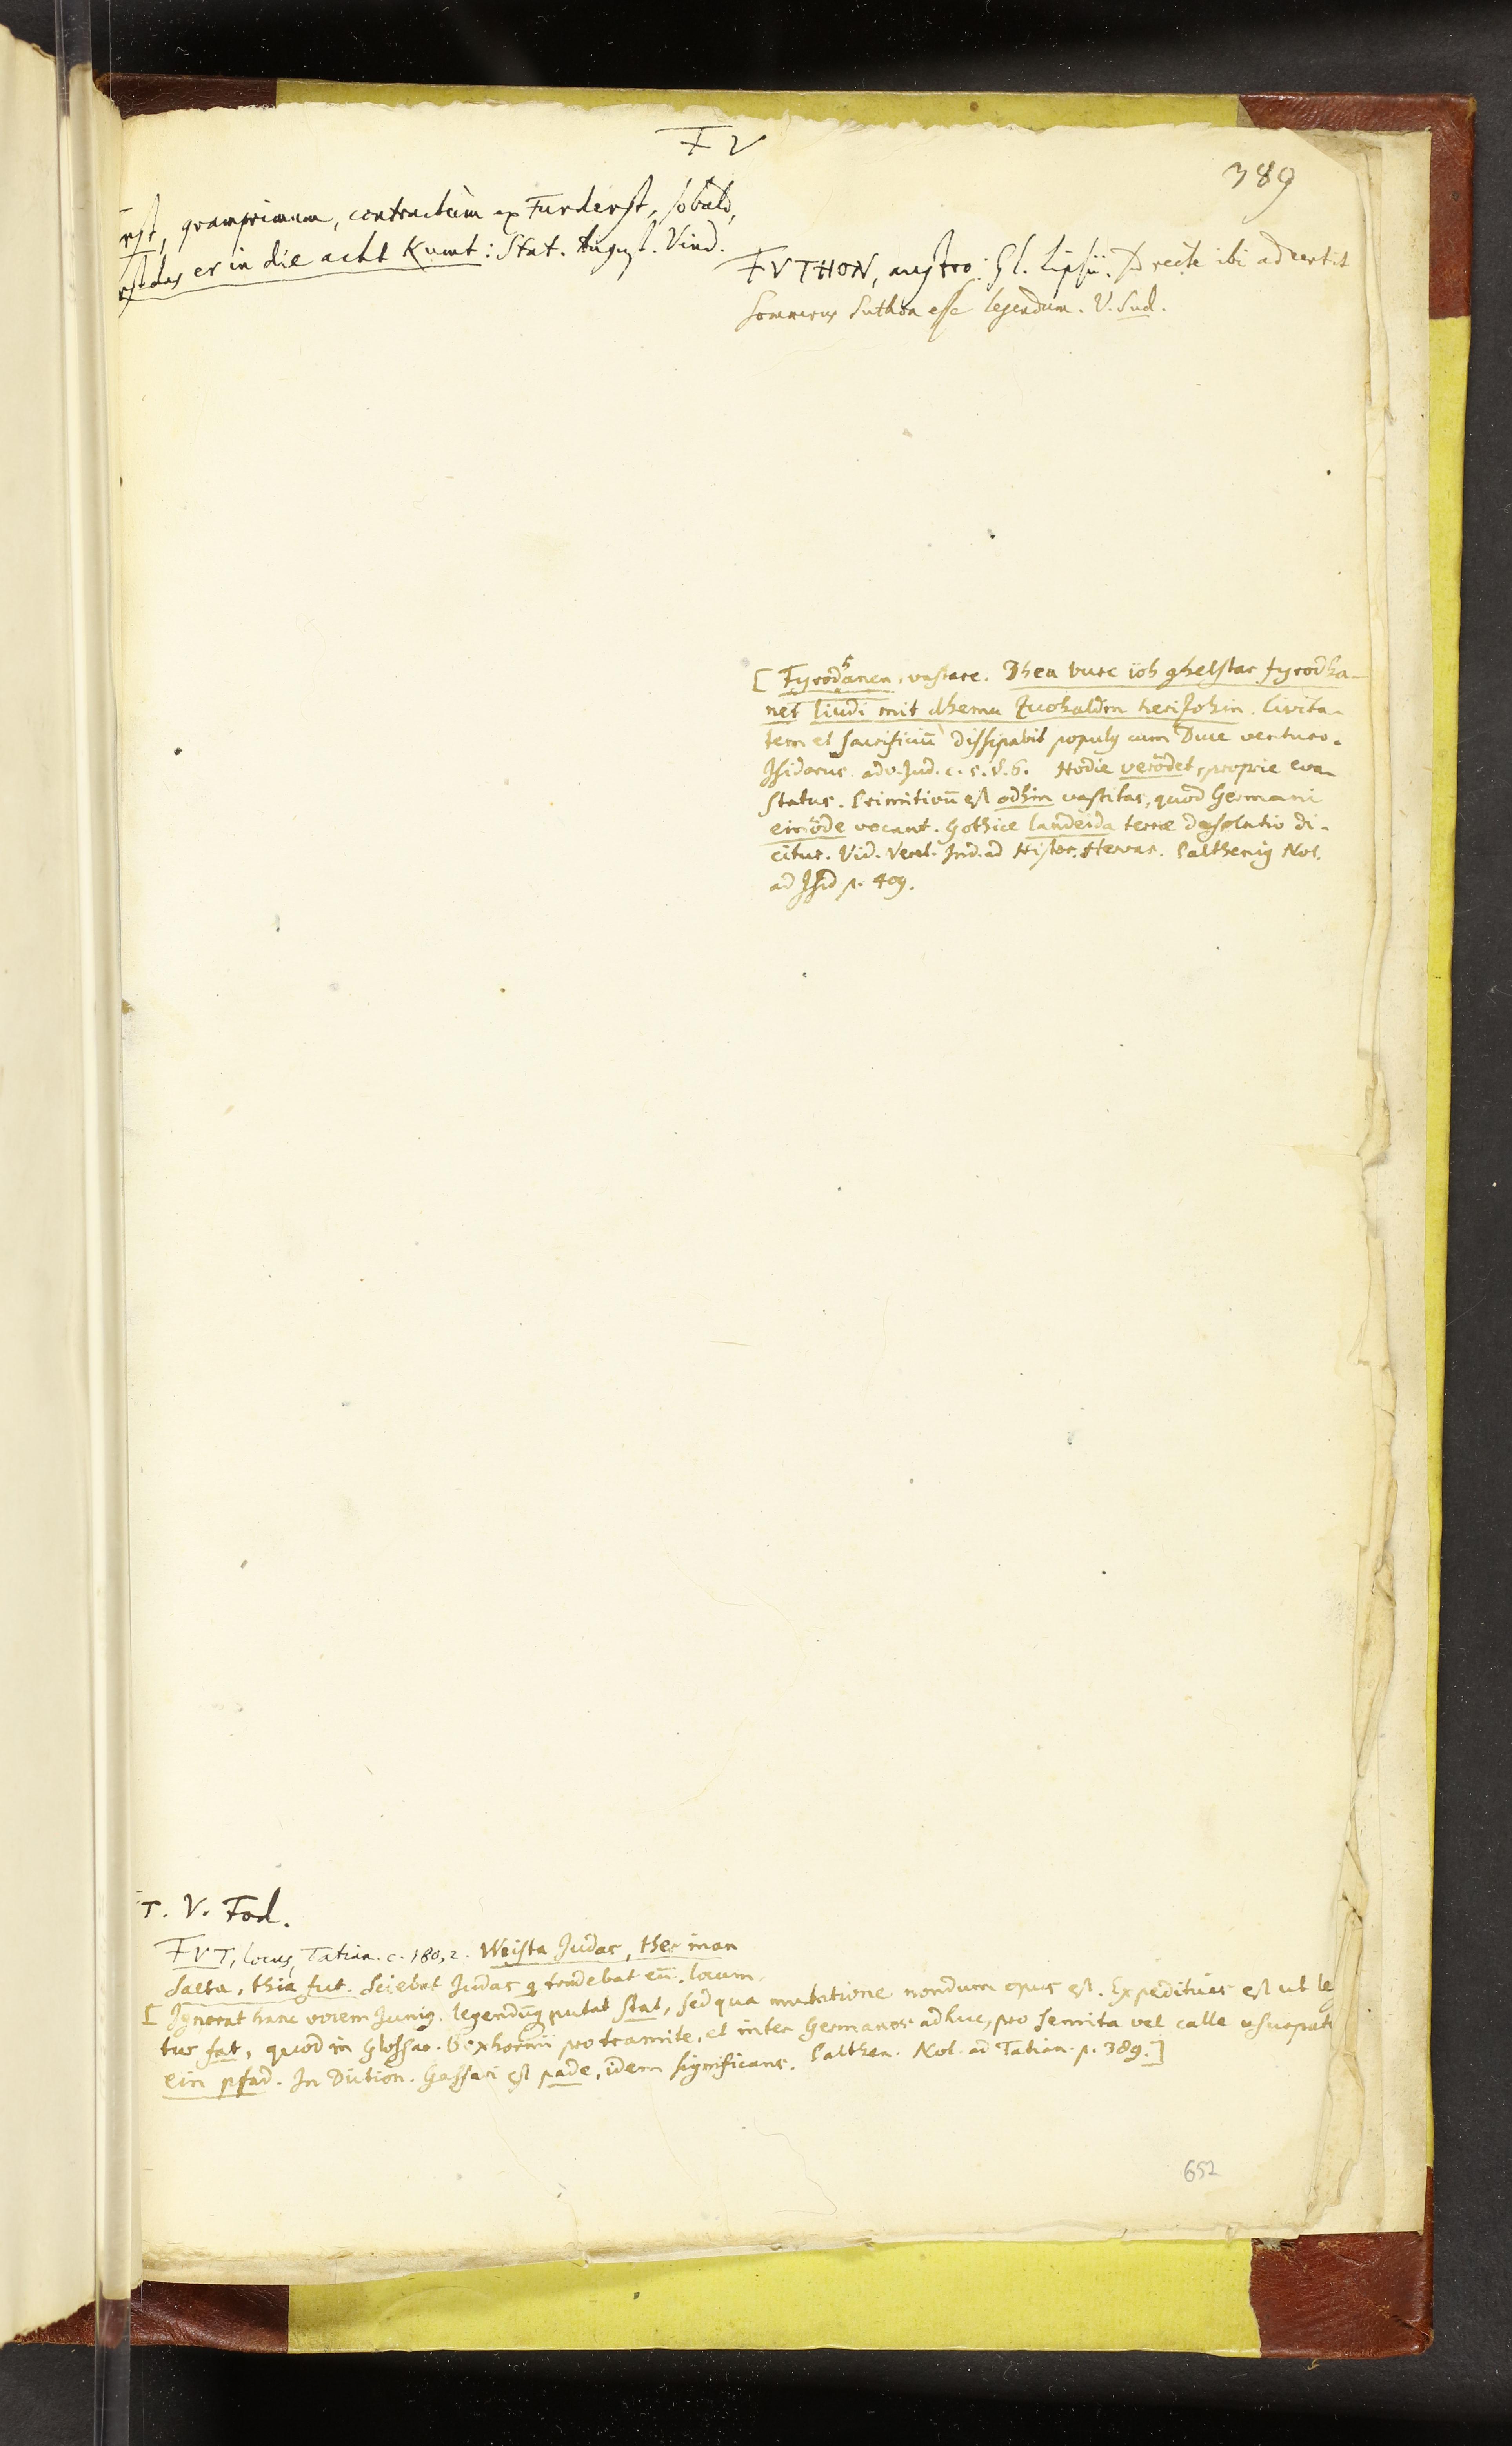 F V
389
rst, quamprimum, contractum ex Furderst, sobald,
rst das er in die acht Kumt: Stat. August. Vind.
FVTHON, austro: Gl. Lipsii. Sed recte ibi advertit
Somnerus Suthon esse legendum. V. Sud.
[Fyrodhanen, vastare. Dhea burc ioh ghelstar fyrodha-
net liudi mit dhemu zuohaldin herizohin. Civita-
tem et sacrificiū dissipabit populus cum Duce venturo.
Isidorus adv. Jud. c. 5. §. 6. Hodie verödet, proprie eva-
status. Primitivū est odhin vastitas, quod Germani
einöde vocant. Gothice landeida terræ desolatio di-
citur. Vid. Verel. Ind. ad Histor. Hervar. Palthenig Not.
ad Isid p. 409.
T. V. Fad.
FVT, locus, Tatian. c. 180, 2. Weista Judas, ther inan
salta, thia fut. Sciebat Judas q tradebat eū, locum.
[Ignorat hanc vocem Junig. legendūq putat stat, sed qua mutatione nondum opus est. Expeditius est ut le
tur fat, quod in Glossar. Boxhornii pro tramite, et inter Germanos adhuc, pro semita vel calle usurpat
ein pfad. In Diction. Gassari est pade, idem significans. Palthen. Not. ad Tatian. p. 389.]
652